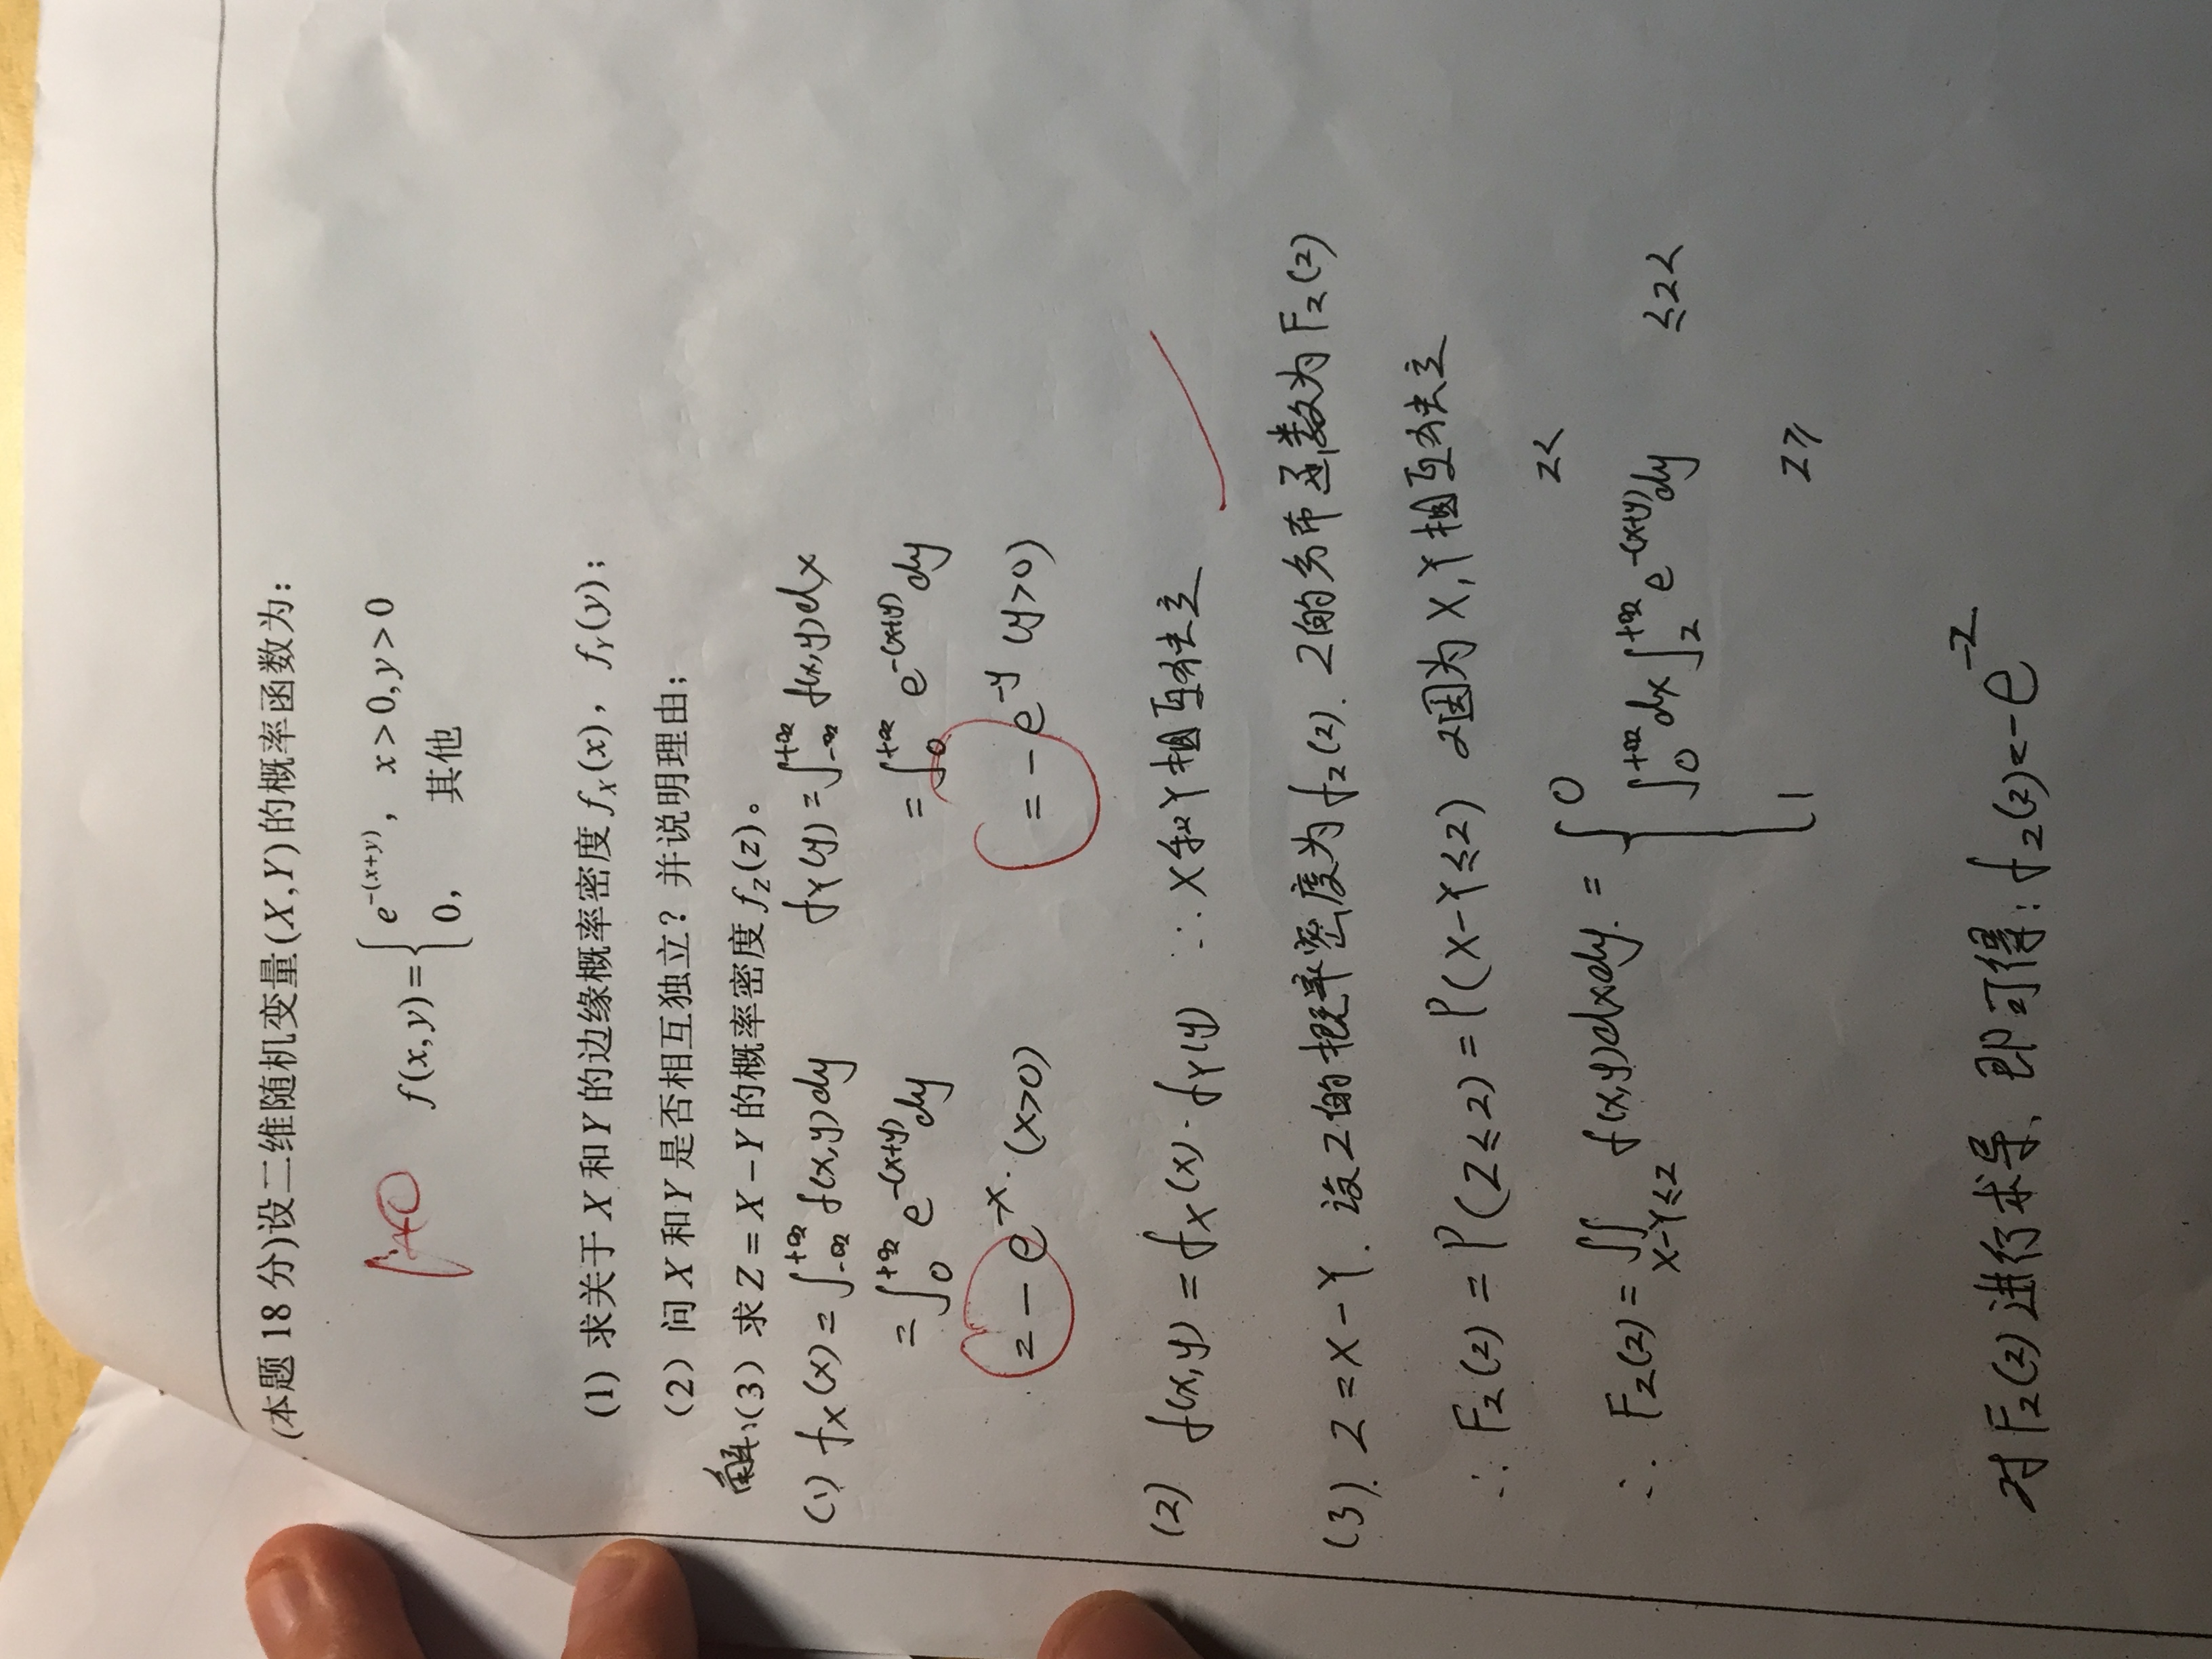 (本题 18 分)设二维随机变量(X,Y)的概率函数为：
f(x,y)={ e^{-(x+y)}, x>0,y>0
0, 其他
(1) 求关于 X 和 Y 的边缘概率密度 f_X(x)， f_Y(y)；
（2）问 X 和 Y 是否相互独立？并说明理由；
解:（3）求 Z = X − Y 的概率密度 f_Z(z)。
(1) f_X(x) = ∫_{-∞}^{+∞} f(x,y)dy f_Y(y) = ∫_{-∞}^{+∞} f(x,y)dx
= ∫_0^{+∞} e^{-(x+y)}dy = ∫_0^{+∞} e^{-(x+y)}dy
= - e^{-x}. (x>0) = - e^{-y} (y>0)
(2) f(x,y) = f_X(x) · f_Y(y) ∴ X和Y相互独立
(3). Z = X - Y. 设Z的概率密度为f_Z(z). Z的分布函数为F_Z(z)
∴ F_Z(z) = P(Z≤z) = P(X-Y≤z) 又因为X,Y相互独立
∴ F_Z(z) = ∬_{X-Y≤z} f(x,y)dxdy. = { 0 z<
∫_0^{+∞}dx∫_z^{+∞} e^{-(x+y)}dy ≤z<
1 z≥
对F_Z(z)进行求导、即可得: f_Z(z) = -e^{-z}